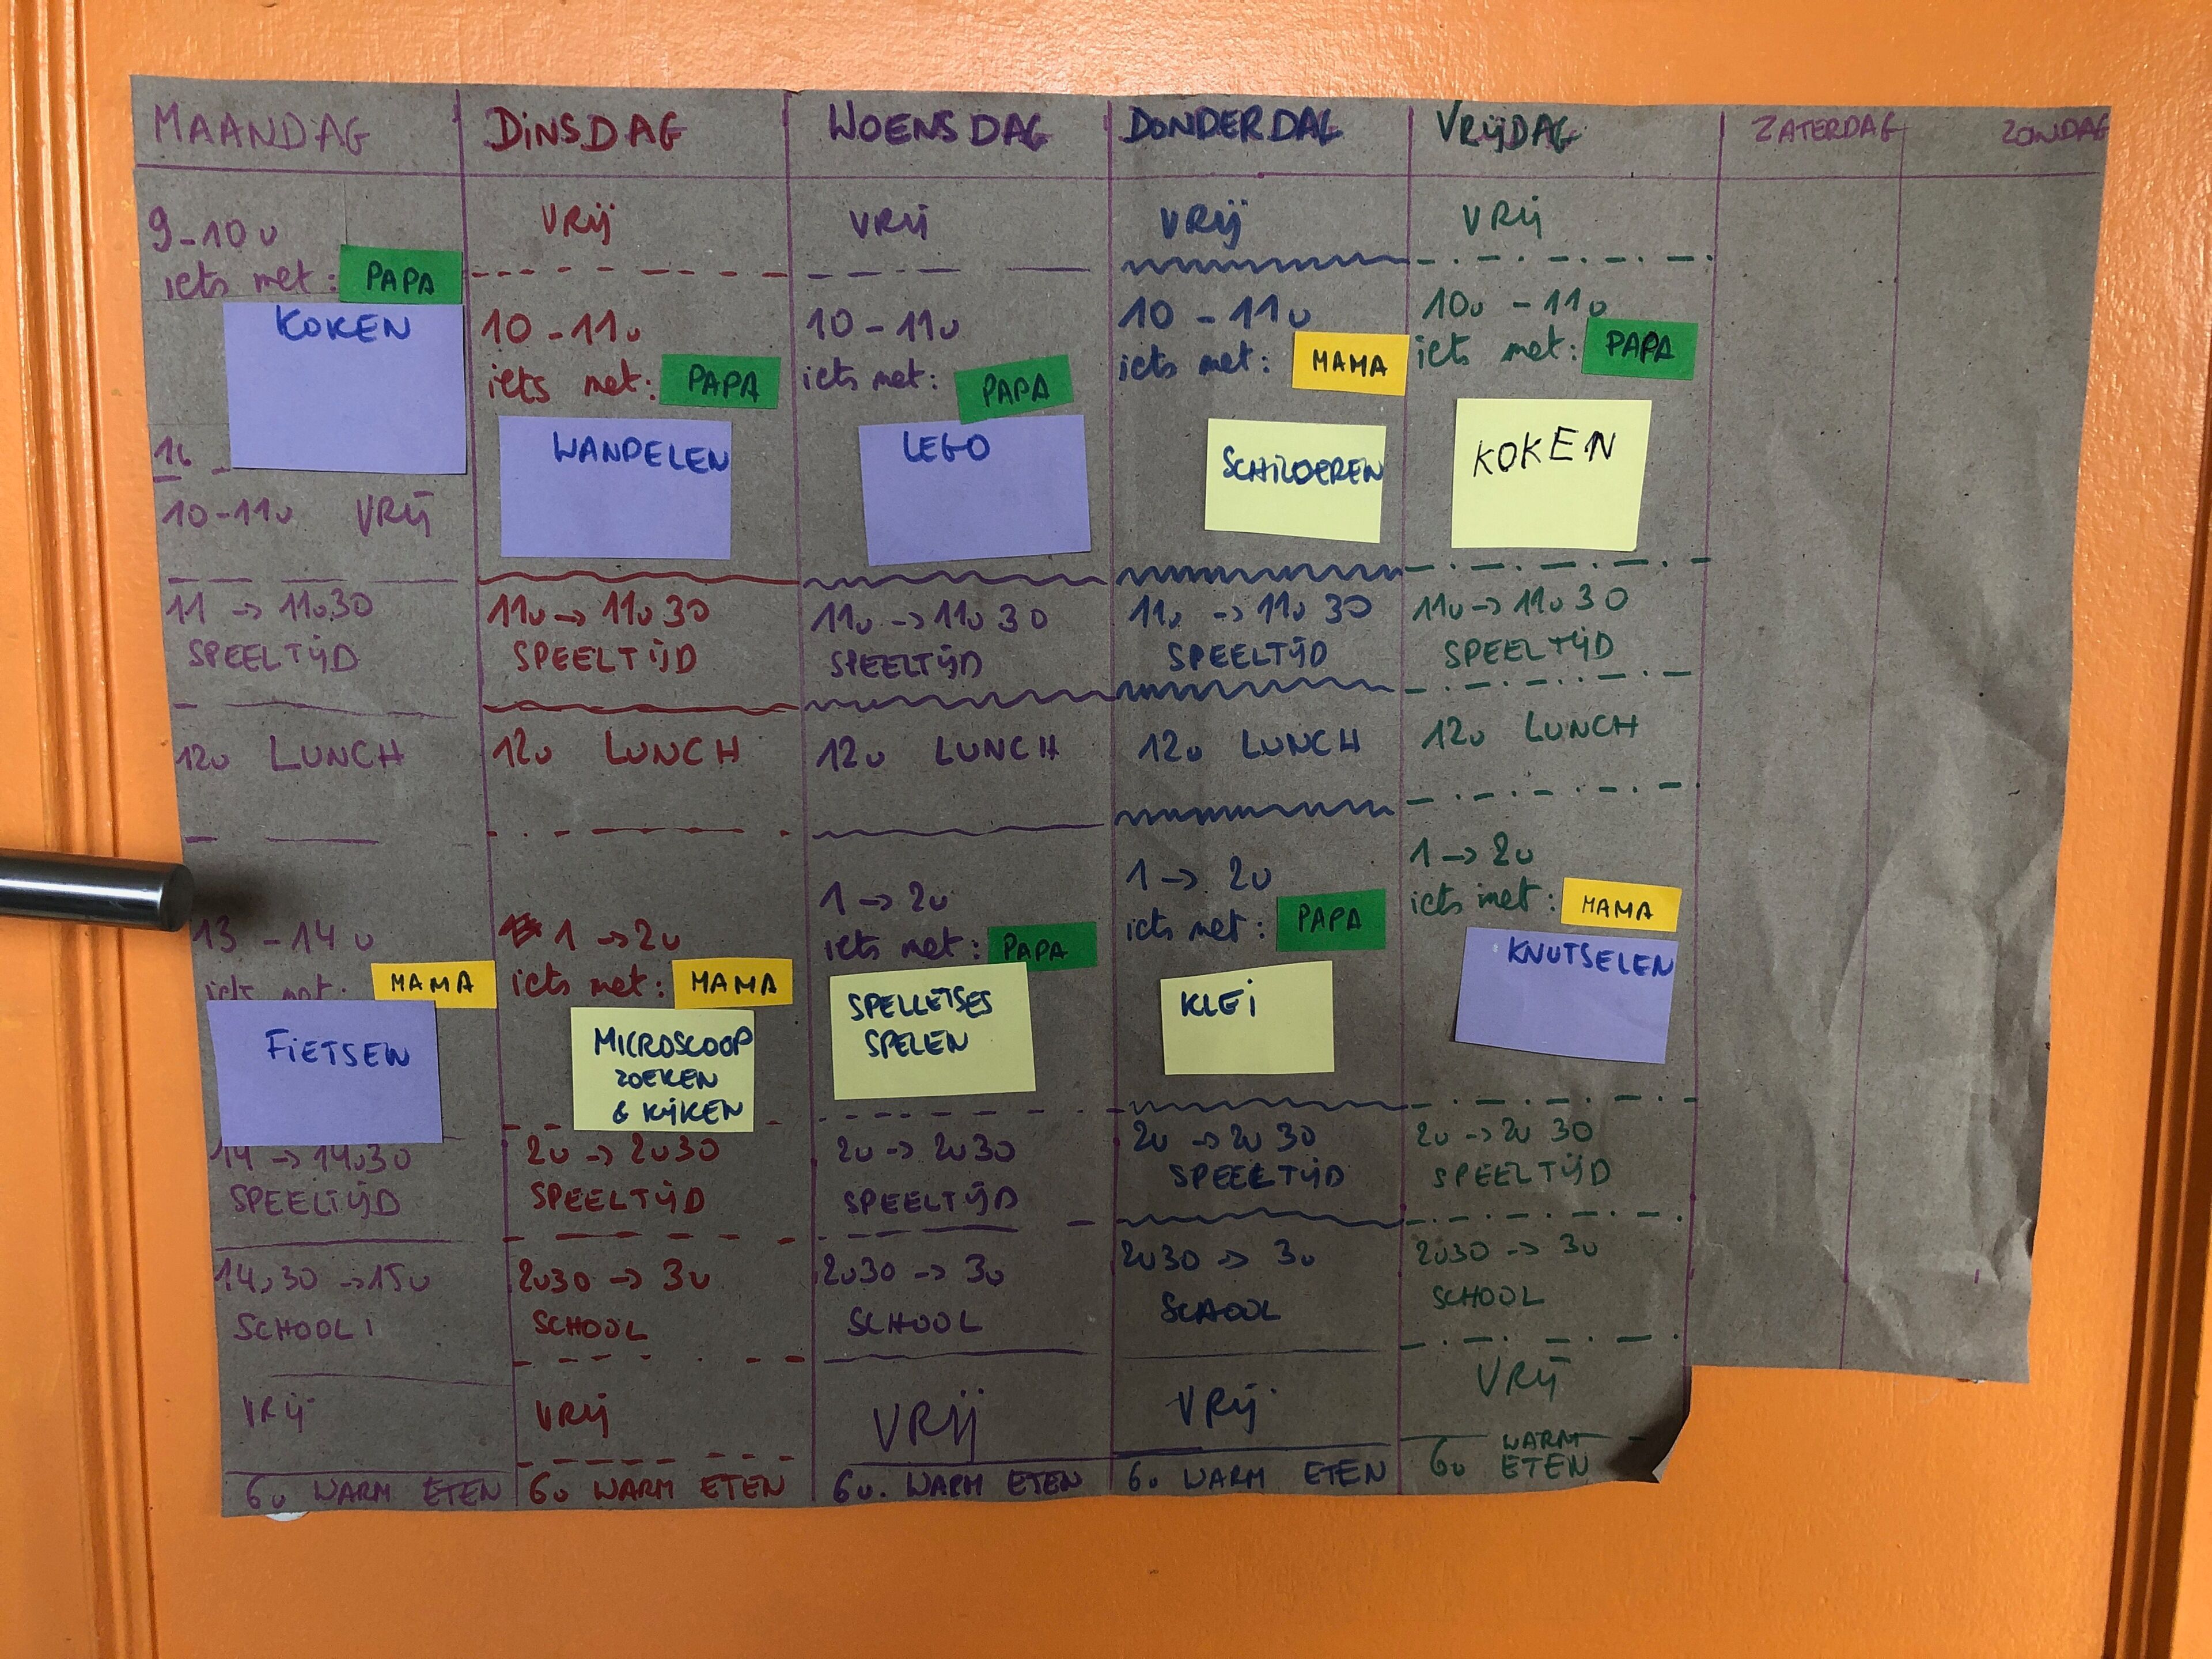 MAANDAG
9-10u
iets met: PAPA
KOKEN
10-11u VRIJ
11 -> 11u30
SPEELTIJD
12u LUNCH
13 - 14u
iets met: MAMA
FIETSEN
14 -> 14u30
SPEELTIJD
14u30 -> 15u
SCHOOL
VRIJ
6u WARM ETEN
DINSDAG
VRIJ
10-11u
iets met: PAPA
WANDELEN
11u -> 11u30
SPEELTIJD
12u LUNCH
1 -> 2u
iets met: MAMA
MICROSCOOP
ZOEKEN
& KIJKEN
2u -> 2u30
SPEELTIJD
2u30 -> 3u
SCHOOL
VRIJ
6u WARM ETEN
WOENSDAG
VRIJ
10-11u
iets met: PAPA
LEGO
11u -> 11u30
SPEELTIJD
12u LUNCH
1 -> 2u
iets met: PAPA
SPELLETJES
SPELEN
2u -> 2u30
SPEELTIJD
2u30 -> 3u
SCHOOL
VRIJ
6u. WARM ETEN
DONDERDAG
VRIJ
10 - 11u
iets met: MAMA
SCHILDEREN
11u -> 11u30
SPEELTIJD
12u LUNCH
1 -> 2u
iets met: PAPA
KLEI
2u -> 2u30
SPEELTIJD
2u30 -> 3u
SCHOOL
VRIJ
6u WARM ETEN
VRIJDAG
VRIJ
10u - 11u
iets met: PAPA
KOKEN
11u -> 11u30
SPEELTIJD
12u LUNCH
1 -> 2u
iets met: MAMA
KNUTSELEN
2u -> 2u30
SPEELTIJD
2u30 -> 3u
SCHOOL
VRIJ
6u WARM
ETEN
ZATERDAG
ZONDAG